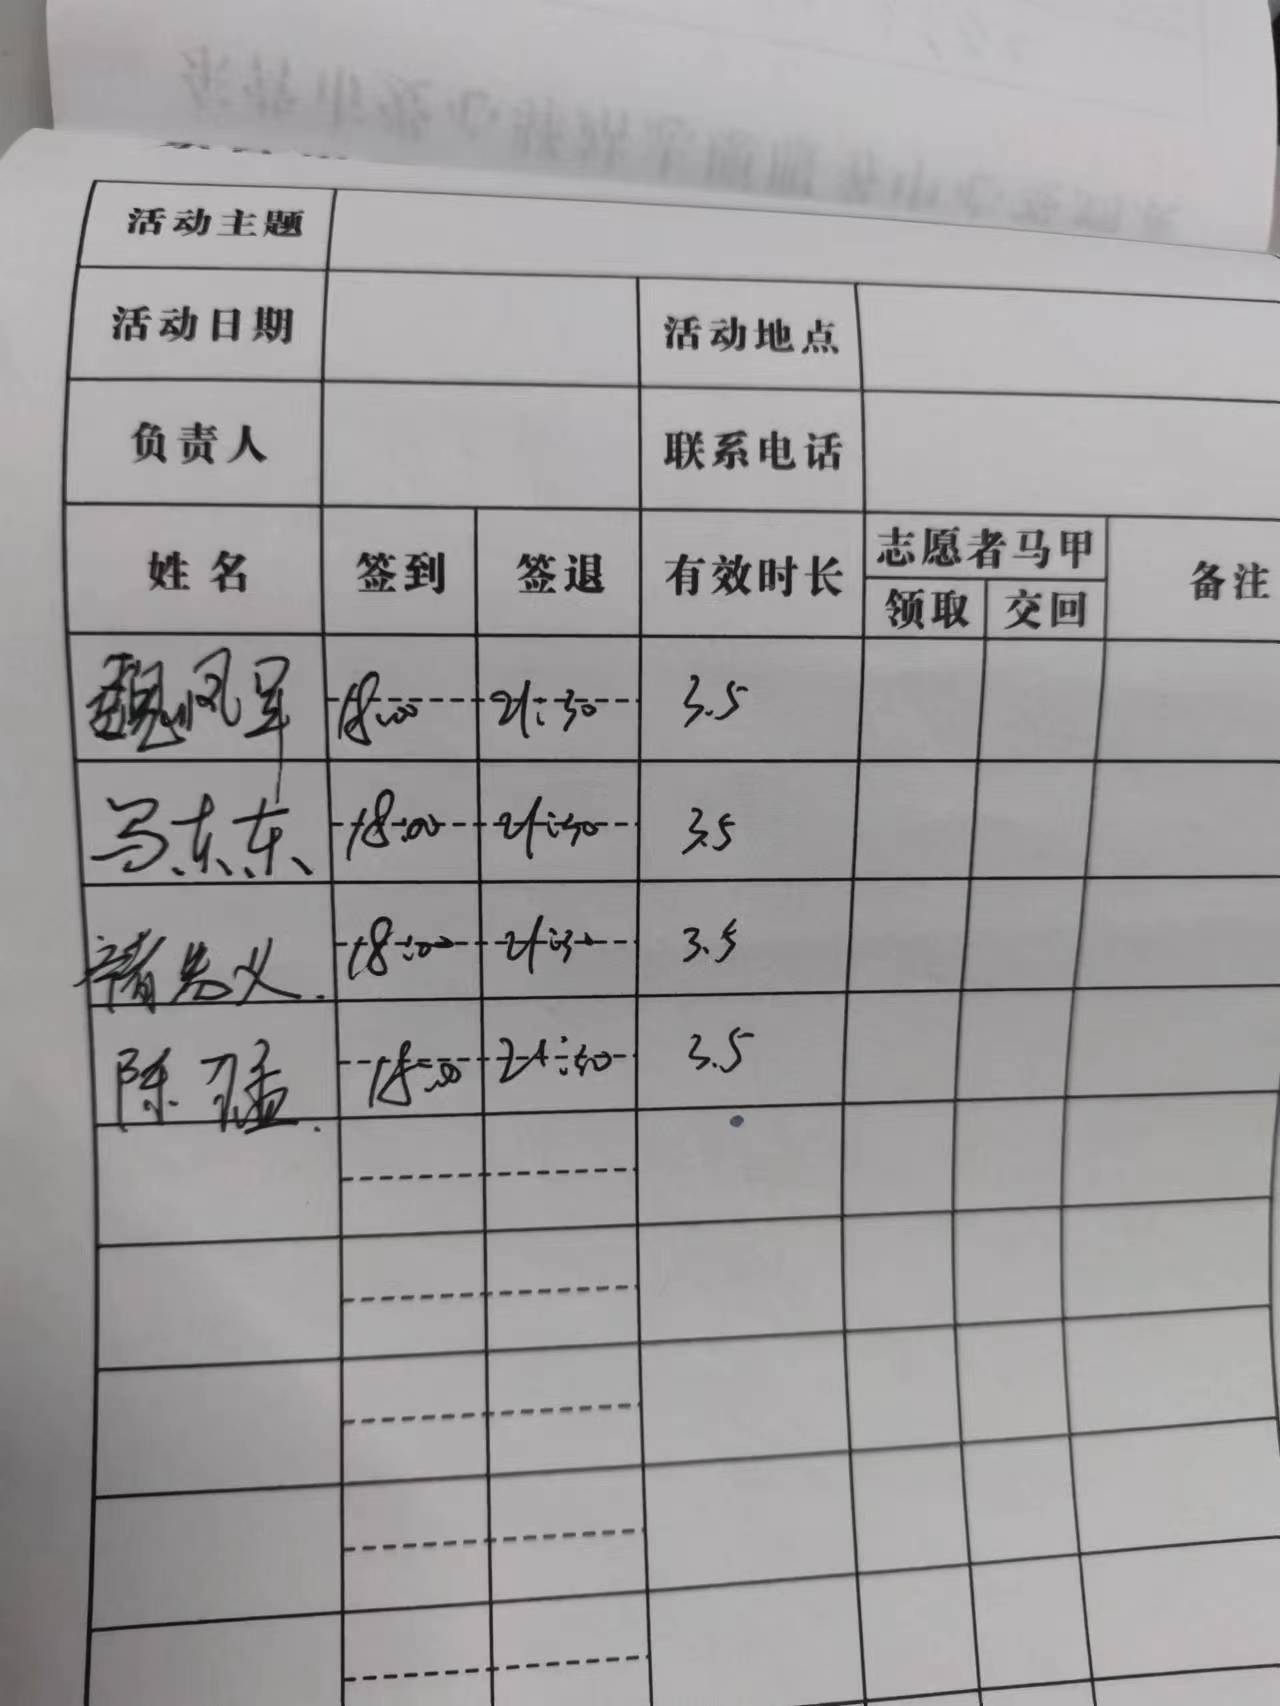 活动主题
活动日期 活动地点
负责人 联系电话
姓名 签到 签退 有效时长 志愿者马甲 备注
领取 交回
魏凤军 18:00 21:30 3.5
马东东 18:00 21:30 3.5
18:00 21:30 3.5
陈猛 18:00 21:30 3.5